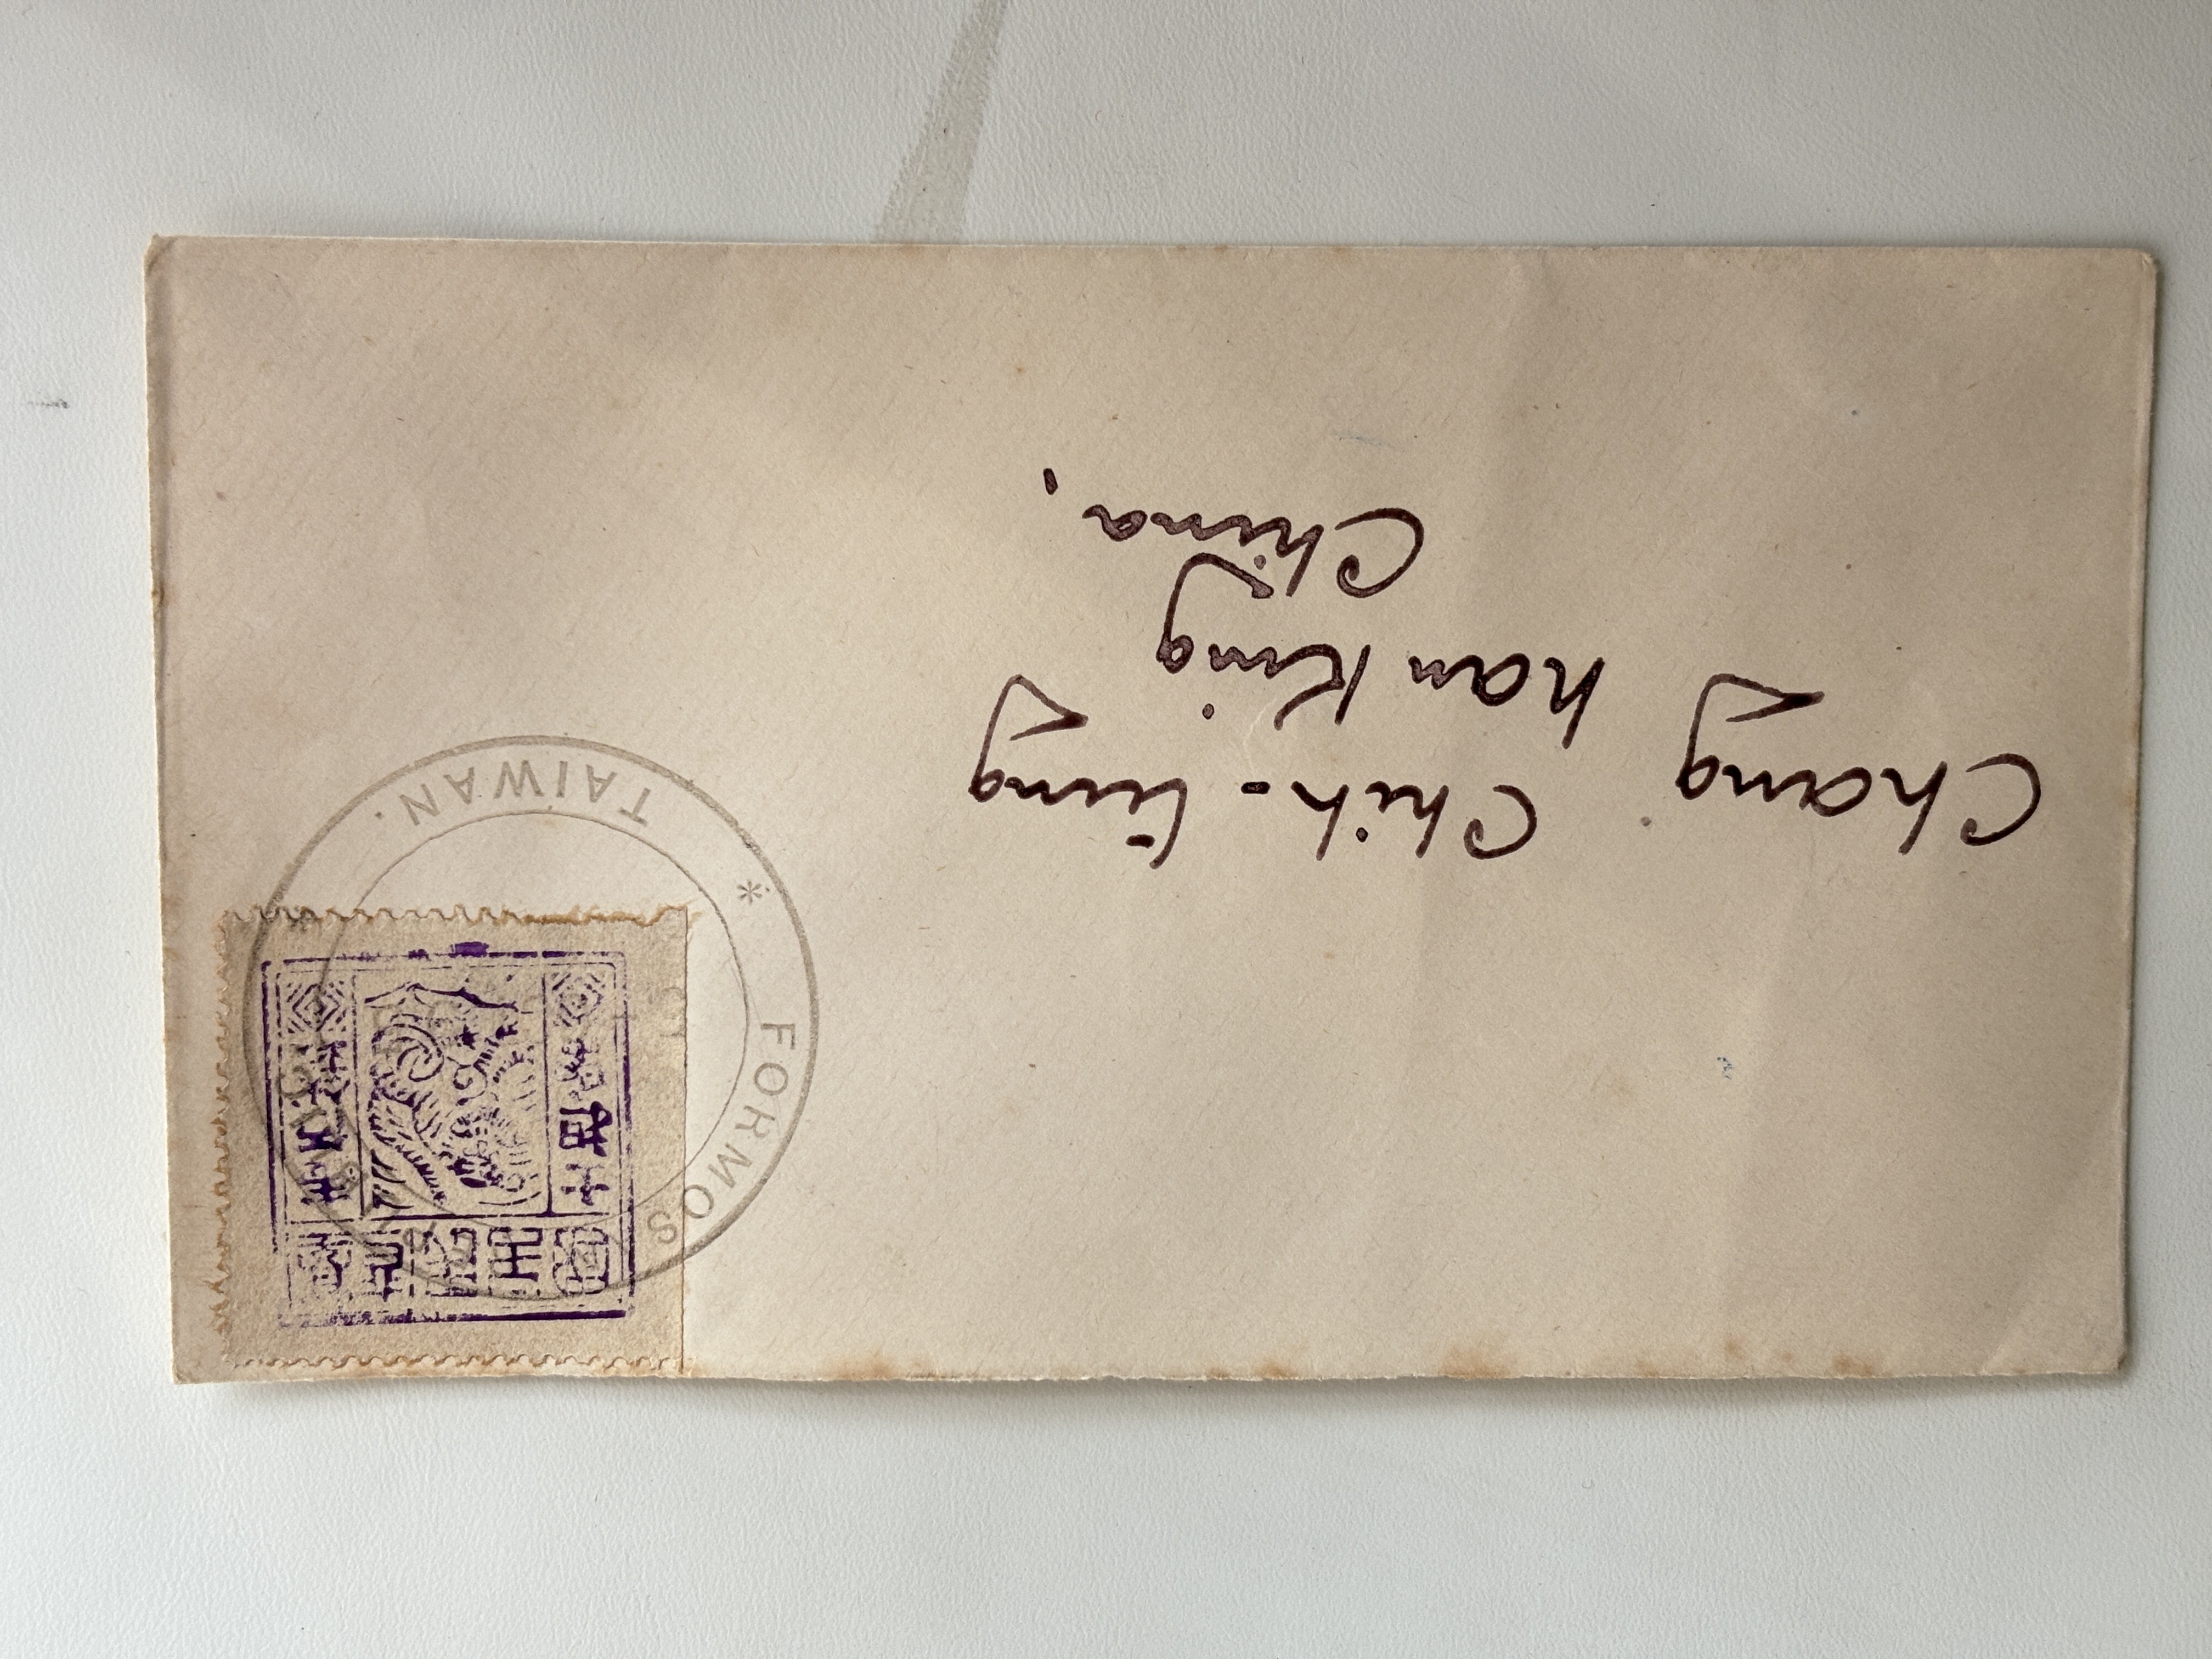 Chang Chih-ling
nan King
China.
TAIWAN.
FORMOS
臺灣民主國